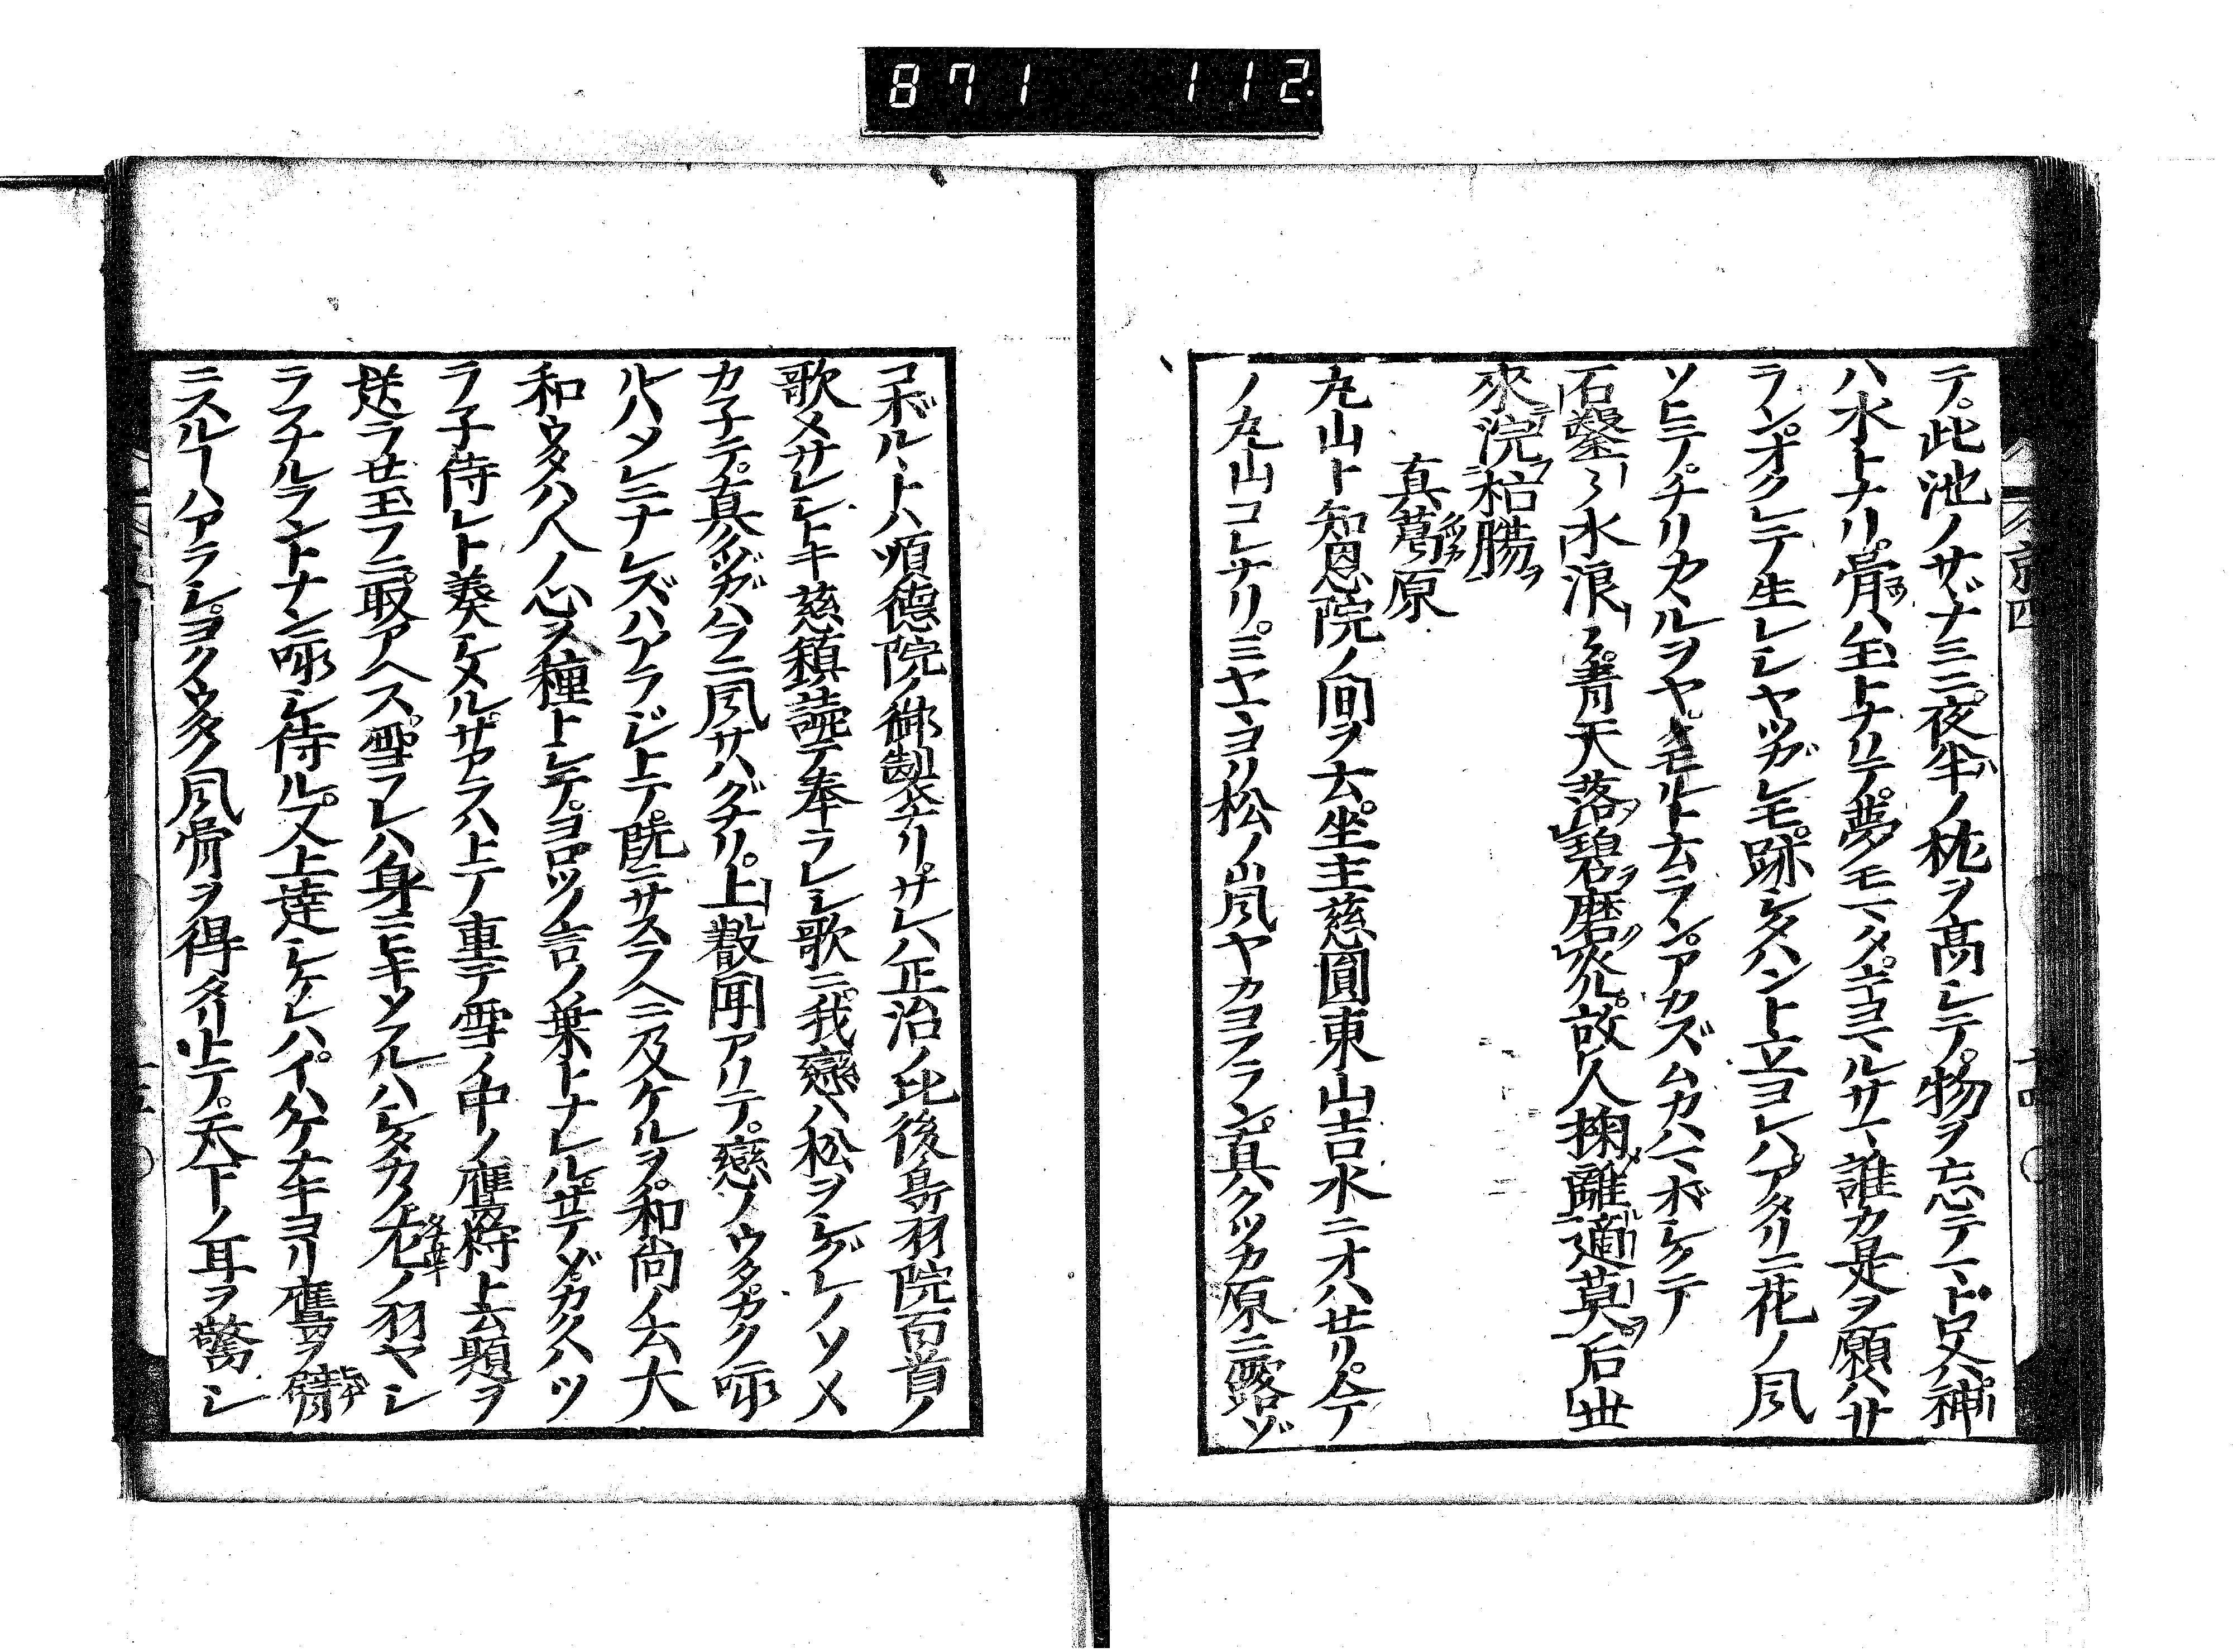 871 112.
テ。此池ノサヾナミニ。夜半ノ枕ヲ高シテ。物ヲ忘テ
ハ水トナリ。骨ハ玉トナリテ。夢モ
誰カ是ヲ願ハサ
ランオクレテ生レシヤツガレモ。跡シタハント立ヨレハアタリニ花ノ風
ソヒテ。チリカヽルヲヤ。クモルト云ラン。アカズムカハマボシクテ
石鑿水浪青天落碧磨故人掬離適莫后世
來浣枯腸
真葛原
丸山ト知恩院ノ間ヲ云。坐主慈圓東山吉水ニオハセリ。今
ノ丸山コレナリ。ミヤマヨリ松ノ嵐ヤカヨフラン。真クツカ原ニ露ゾ
コボルヽトハ順德院ノ御製ナリ。サレハ正治ノ比後鳥羽院百首ノ
歌メサレシトキ慈鎮読テ奉ラレシ歌ニ。我戀ハ松ヲシグレノソメ
カ子テ。真クヅガハラニ風サハグナリ。上聞アリテ。戀ノウタカク詠
ルハタレニナレズハアラジトテ。既ニサスラヘニ及ケルヲ。和尚ノ云大
和ウタハ人ノ心ヲ種トシテ。ヨロツノ言ノ葉トナレル。サテゾカクハツ
ラ子侍レト奏ケメル。サアラハトテ重テ雪ノ中ノ鷹狩ト云題ヲ
送ラせ玉フニ。取アヘス。雪フレハ身ニヒキソフルハシタカノ
ノ羽ヤシ
ラフナルラントナン詠シ侍ル。又上達シケレハ。イハケナキヨリ鷹ヲ臂
ニスルヿハアラシ。ヨクウタノ風骨ヲ得タリ止テ。天下ノ耳ヲ驚シ